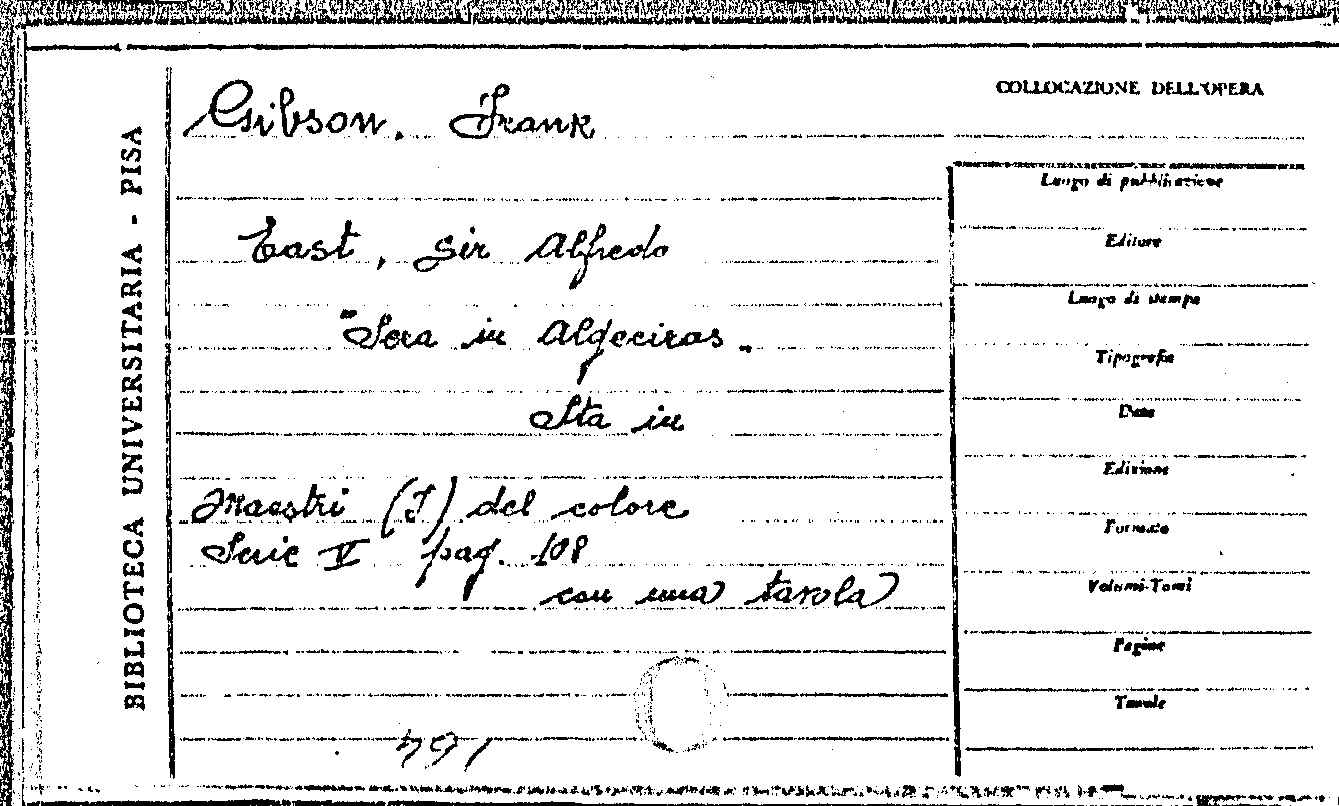 BIBLIOTECA UNIVERSITARIA - PISA
Gibson, Frank
East, Sir Alfredo
"Sera in Algeciras"
Sta in
Maestri (I) del colore
Serie V pag. 108
con una tavola
COLLOCAZIONE DELL'OPERA
Luogo di pubblicazione
Editore
Luogo di stampa
Tipografia
Data
Edizione
Formato
Volumi-Tomi
Pagine
Tavole